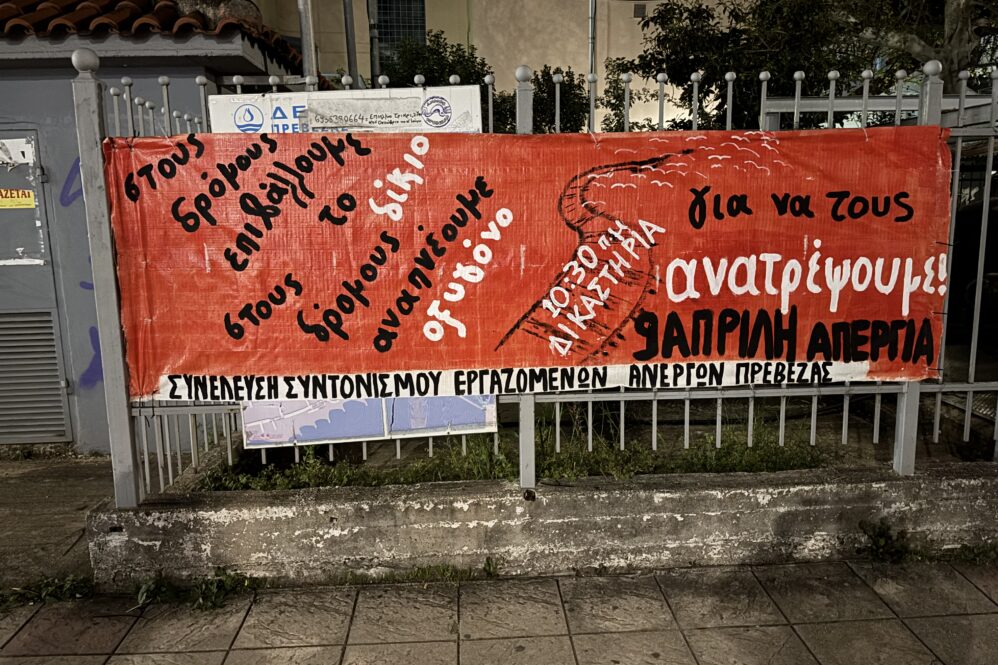 ΔΕ
ΠΡΕΒΕΖΑΣ
στους
δρόμους
επιβάλλουμε
το
δίκιο
στους
δρόμους
αναπνέουμε
οξυγόνο
10:30 πμ
ΔΙΚΑΣΤΗΡΙΑ
για να τους
ανατρέψουμε!
9 ΑΠΡΙΛΗ ΑΠΕΡΓΙΑ
ΣΥΝΕΛΕΥΣΗ ΣΥΝΤΟΝΙΣΜΟΥ ΕΡΓΑΖΟΜΕΝΩΝ ΑΝΕΡΓΩΝ ΠΡΕΒΕΖΑΣ